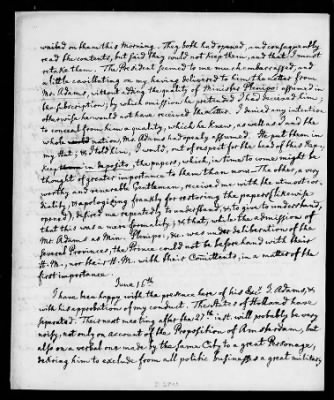 waited on them this Morning. They both had opened, and consequently
read the contents, but said they could not keep them, and that I must
retake them. The President seemed to me much embarrassed, and
a little cavillating on my having delivered to him the Letter from
Mr. Adams, without adding the quality of Minister Plenipo: assumed in
the subscription; by which omission he pretended I had deceived him;
otherwise he would not have received the Letter. I denied any intention
to conceal from him a quality, which he knew, as well as I and the
whole nation, Mr. Adams had openly assumed. He put them in
my Hat; & I told him, I would, out of respect for the head of this Repe.,
keep in deposite, the papers, which, in time to come might be
thought of greater importance to them than now. The other, a very
worthy and venerable Gentleman, received me with the utmost cor-
diality, & apologizing frankly for restoring the papers (likewise
opened), desired me repeatedly to understand, & to give to understand,
that this was a mere formality; & that, while the admission of
Mr. Adams as Minr. Plenipo: &c. was under deliberation of the
several Provinces, the Prince could not be beforehand with their
H. M; nor their H. M. with their Comittents, in a matter of the
first importance.
June 15th
I have been happy with the presence here of his Excy. J. Adams, &
with his approbation of my conduct. The States of Holland have
separated. Their next meeting after the 27th inst. will probably be very
noisy, not only on account of the Proposition of Amsterdam, but
also on a verbal one made by the same City to a great Personage,
desiring him to exclude from all politic business a great military